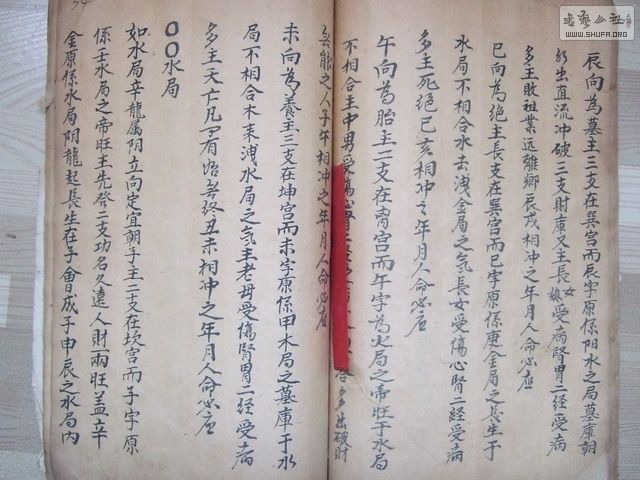 辰向為墓主三支在巽宫而辰字原係阳水之局墓庫朝
出直流冲破三支財庫又主長女娘受病腎胃二经受病
多主敗祖業远離鄉辰戌相冲之年月人命必应
巳向為絕主長支在巽宫而巳字原係庚金局之長生于
水局不相合水去洩金局之气長女受傷心腎二经受病
多主死绝巳亥相冲之年月人命必应
午向為胎主二支在离宫而午字為火局之帝旺于水局
不相合主中男受傷心腎二经 多出破財
芸能之人子午相冲之年月人命必应
未向為養主三支在坤宫而未字原係甲木局之墓庫于水
局不相合木来洩水局之气主老母受傷腎胃二经受病
多主夭亡凡事有始無终丑未相冲之年月人命必应
〇〇水局
如水局辛龍属阴立向定宜朝子主二支在坎宫而子字原
係壬水局之帝旺主先發二支功名久遠人財兩旺益辛
金原係水局阴龍起長生在子會成子申辰之水局内
書藝公社
WWW.SHUFA.ORG